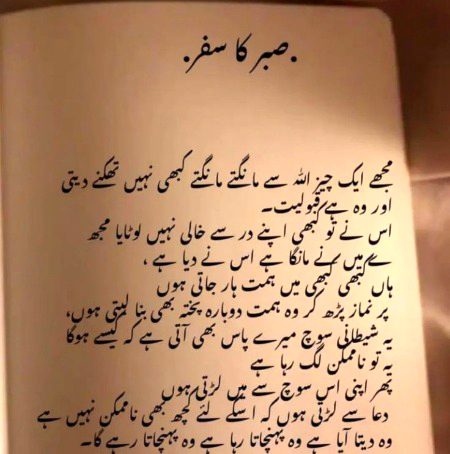 .صبر کا سفر.
مجھے ایک چیز اللہ سے مانگتے مانگتے کبھی نہیں تھکنے دیتی
اور وہ ہے قبولیت۔
اس نے تو کبھی اپنے در سے خالی نہیں لوٹایا مجھ
ے میں نے مانگا ہے اس نے دیا ہے ،
ہاں کبھی کبھی میں ہمت ہار جاتی ہوں
پر نماز پڑھ کر وہ ہمت دوبارہ پختہ بھی بنا لیتی ہوں،
یہ شیطانی سوچ میرے پاس بھی آتی ہے کہ کیسے ہوگا
یہ تو ناممکن لگ رہا ہے
پھر اپنی اس سوچ سے میں لڑتی ہوں
دعا سے لڑتی ہوں کہ اسکے لئے کچھ بھی ناممکن نہیں ہے
وہ دیتا آیا ہے وہ پہنچاتا رہا ہے وہ پہنچاتا رہے گا۔